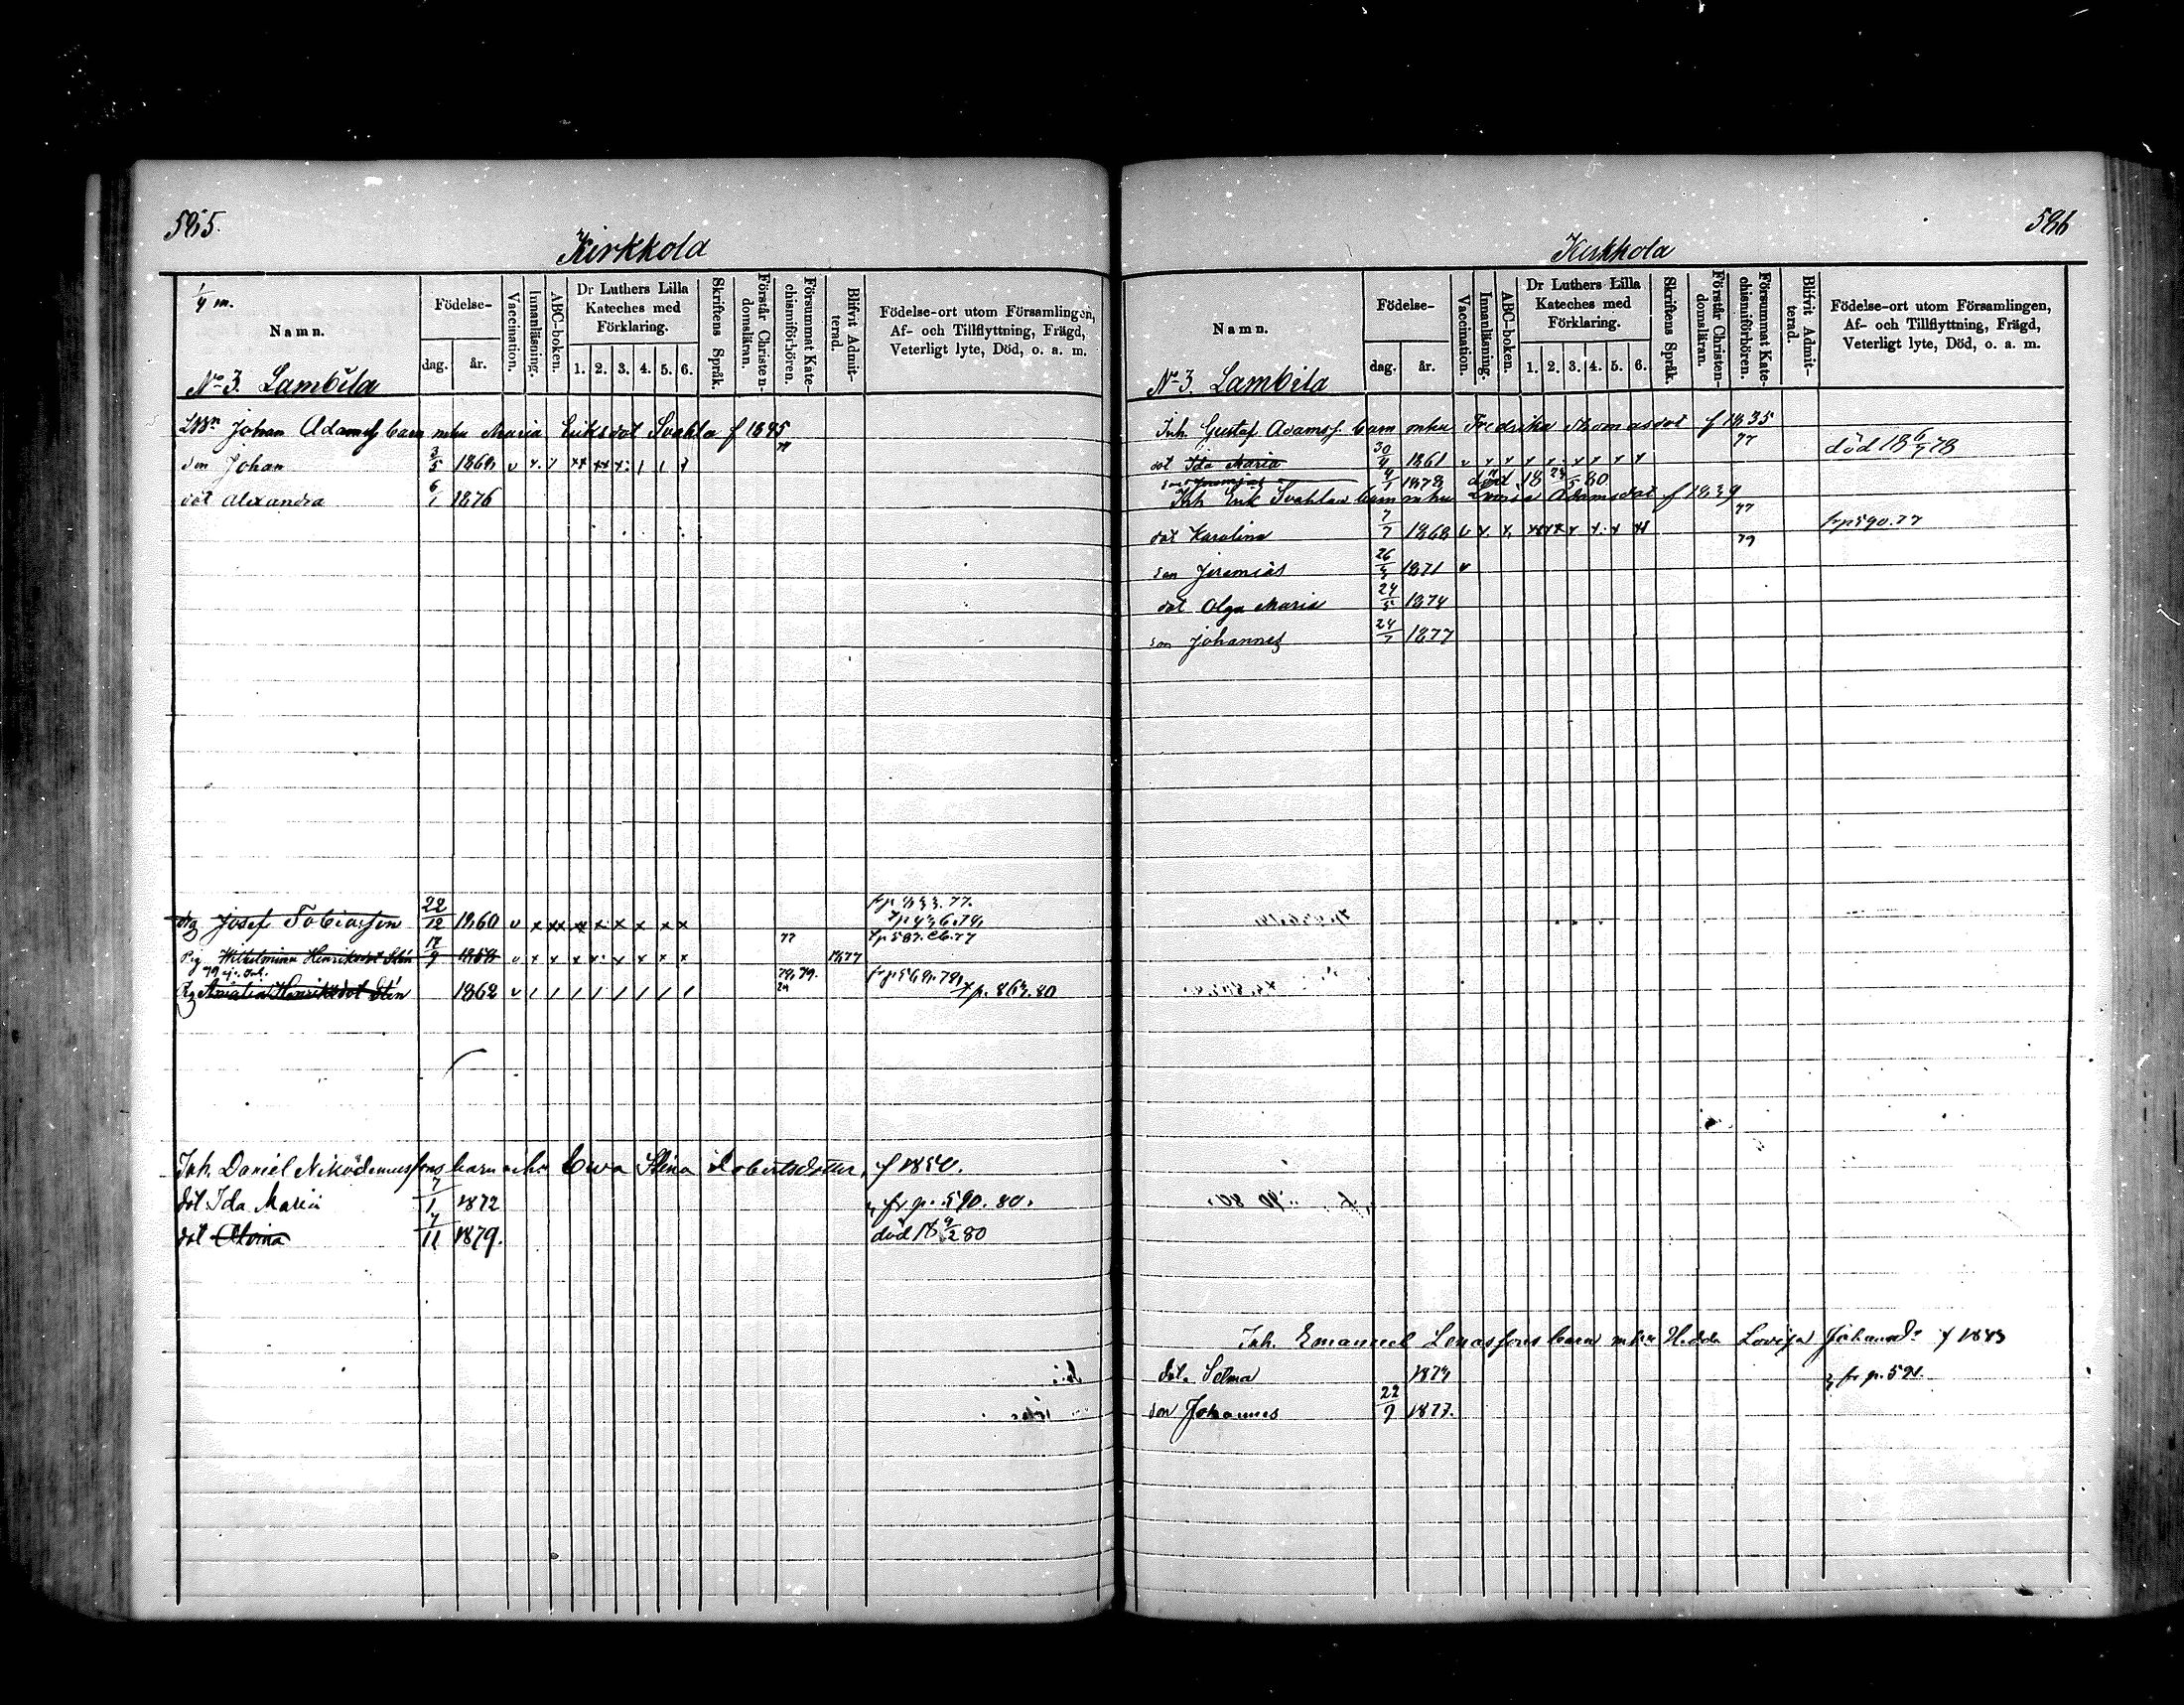 585.
Kirkkola
1/4 m.
Namn.
Födelse-
dag. år.
Vaccination.
Innanläsning.
ABC-boken.
Dr Luthers Lilla
Kateches med
Förklaring.
1. 2. 3. 4. 5. 6.
Skriftens Språk.
Förstår Christen-
domsläran.
Försummat Kate-
chismiförhören.
Blifvit Admit-
terad.
Födelse-ort utom Församlingen,
Af- och Tillflyttning, Frägd,
Veterligt lyte, Död, o. a. m.
No 3. Lambila
Johan Adamss barn m hu Maria Eriksdot Svahla f 1845
son Johan 3/5 1864 v x
dot Alexandra 6/1 1876
fr p 433. 77.
drg Josef Tobiasson 22/12 1860 v x xx xx x x x x x
77
Pig Wilhelmina Henriksdot Stén 17/9 1858 v x x x x x x x x 1877
Pig Amalia Henriksdot Stén 1862 v / / / / / / / /
p. 864. 80
Inh. Daniel Nikodemussons barn m hu Ewa Stina Robertsdotter, f 1850.
dot Ida Maria 7/1 1872 fr p. 590. 80.
dot Alvina 4/11 1879. död 18 9/2 80
586
Kirkkola
Namn.
Födelse-
dag. år.
Vaccination.
Innanläsning.
ABC-boken.
Dr Luthers Lilla
Kateches med
Förklaring.
1. 2. 3. 4. 5. 6.
Skriftens Språk.
Förstår Christen-
domsläran.
Försummat Kate-
chismiförhören.
Blifvit Admit-
terad.
Födelse-ort utom Församlingen,
Af- och Tillflyttning, Frägd,
Veterligt lyte, Död, o. a. m.
No 3. Lambila
Inh. Gustaf Adamss. barn m hu Fredrika Thomasdot f 1835
dot Ida Maria 30/4 1861 v x x x x x x x x 77 död 18 6/7 78
son 4/1 1878 död 18 24/5 80
Inh Erik Svahlas barn m hu Lovisa Adamsdot f 1839
77
dot Karolina 7/7 1868 v x. x. xx xx x x. x xx fr p 590. 77
79
son Jeremias 1871 v
dot Olga Maria 24/5 1874
son Johannes 24/1 1877
Inh. Emanuel Enassons barn m hu Hedda Lovisa Johansd: f 1843
dot. Selma 1874 fr p. 591.
son Johannes 22/9 1877.